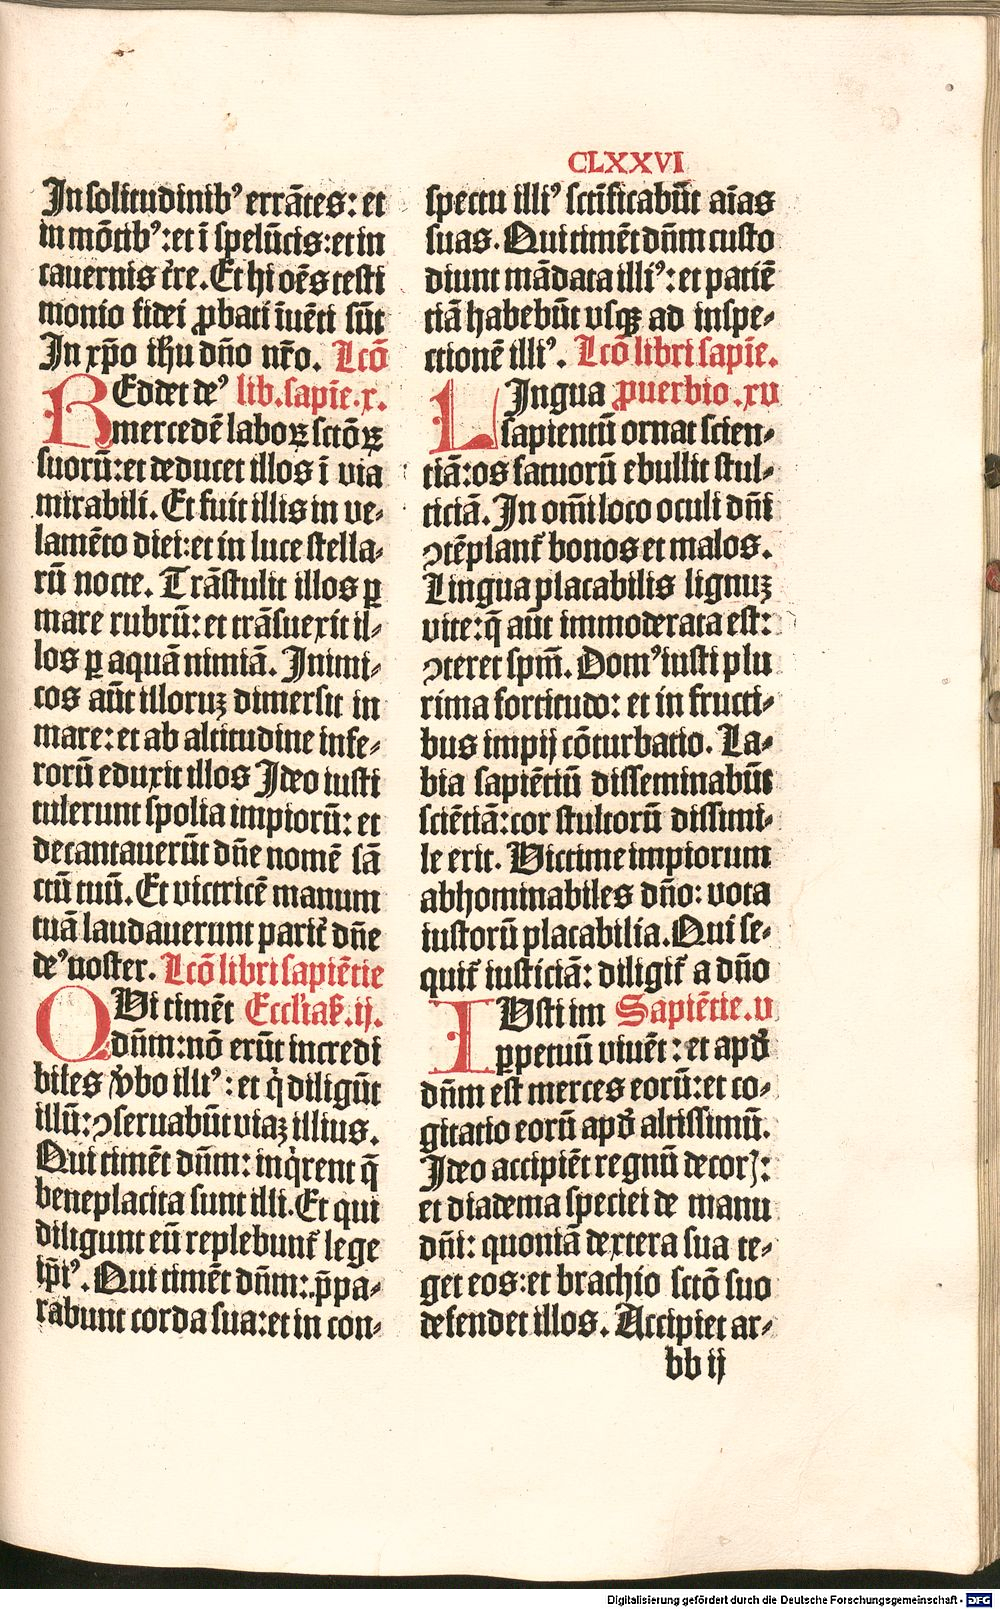 CLXXVI
In solitudinibꝰ errātes: et
in mōtibꝰ: et ī spelūcis: et in
cauernis t̄re. Et hi oēs testi
monio fidei ꝓbati īuēti sūt
In xp̄o ihū dn̄o nr̄o. Lcō
lib. sapīe. x.
REddet deꝰ
mercedē laboꝝ sctōꝝ
suorū: et deducet illos ī via
mirabili. Et fuit illis in ve⸗
lamēto diei: et in luce stella⸗
rū nocte. Trāstulit illos ꝑ
mare rubrū: et trāsuexit il⸗
los ꝑ aquā nimiā. Inimi⸗
cos aūt illoruꝫ dimersit in
mare: et ab altitudine infe⸗
rorū eduxit illos Ideo iusti
tulerunt spolia impiorū: et
decantauerūt dn̄e nomē sā
ctū tuū. Et victricē manum
tuā laudauerunt parit̄ dn̄e
deꝰ noster. Lcō libri sapiētie
Eccl'iaſt̄. ij.
QUi timēt
dn̄m: nō erūt incredi
biles v̓bo illiꝰ: et q̇ diligūt
illū: ꝯseruabūt viaꝫ illius.
Qui timēt dn̄m: inq̇rent q̄
beneplacita sunt illi. Et qui
diligunt eū replebunt̄ lege
ip̄iꝰ. Qui timēt dn̄m: p̄pa⸗
rabunt corda sua: et in con⸗
spectu illiꝰ sctīficabūt aīas
suas. Qui timēt dn̄m custo
diunt mādata illiꝰ: et patiē
tiā habebūt vsqꝫ ad inspe⸗
ctionē illiꝰ. Lcō libri sapīe.
ꝓuerbio. xv
LIngua
sapientū ornat scien⸗
tiā: os fatuorū ebullit stul⸗
ticiā. In om̄i loco oculi dn̄i
ꝯtēplant̄ bonos et malos.
Lingua placabilis lignuꝫ
vite: q̄ aūt immoderata est:
ꝯteret spm̄. Domꝰ iusti plu
rima fortitudo: et in fructi⸗
bus impij cōturbatio. La⸗
bia sapiētiū disseminabūt
sciētiā: cor stultorū dissimi⸗
le erit. Victime impiorum
abhominabiles dn̄o: vota
iustorū placabilia. Qui se⸗
quit̄ iusticiā: diligit̄ a dn̄o
Sapiētie. v
IUsti im
ꝑpetuū viuēt: et apd̓
dn̄m est merces eorū: et co⸗
gitatio eorū apd̓ altissimū.
Ideo accipiēt regnū decorꝭ:
et diadema speciei de manu
dn̄i: quoniā dextera sua te⸗
get eos: et brachio sctō suo
defendet illos. Accipiet ar⸗
bb ij
Digitalisierung gefördert durch die Deutsche Forschungsgemeinschaft - DFG